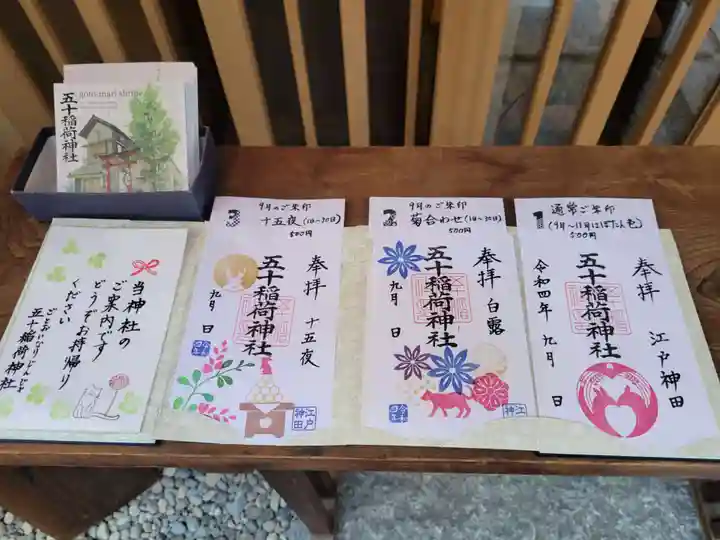 goto inari shrine
五十稲荷神社
当神社の
ご案内です
どうぞお持帰り
ください
ごとおいなりじんじゃ
五十稲荷神社
3
9月のご朱印
十五夜(1日~30日)
500円
奉拝 十五夜
五十稲荷神社
九月 日
江戸
神田
2
9月のご朱印
菊合わせ(1日~30日)
500円
奉拝 白露
五十稲荷神社
九月 日
1
通常ご朱印
(9月~11月はぼたん色)
500円
奉拝 江戸神田
五十稲荷神社
令和四年 九月 日